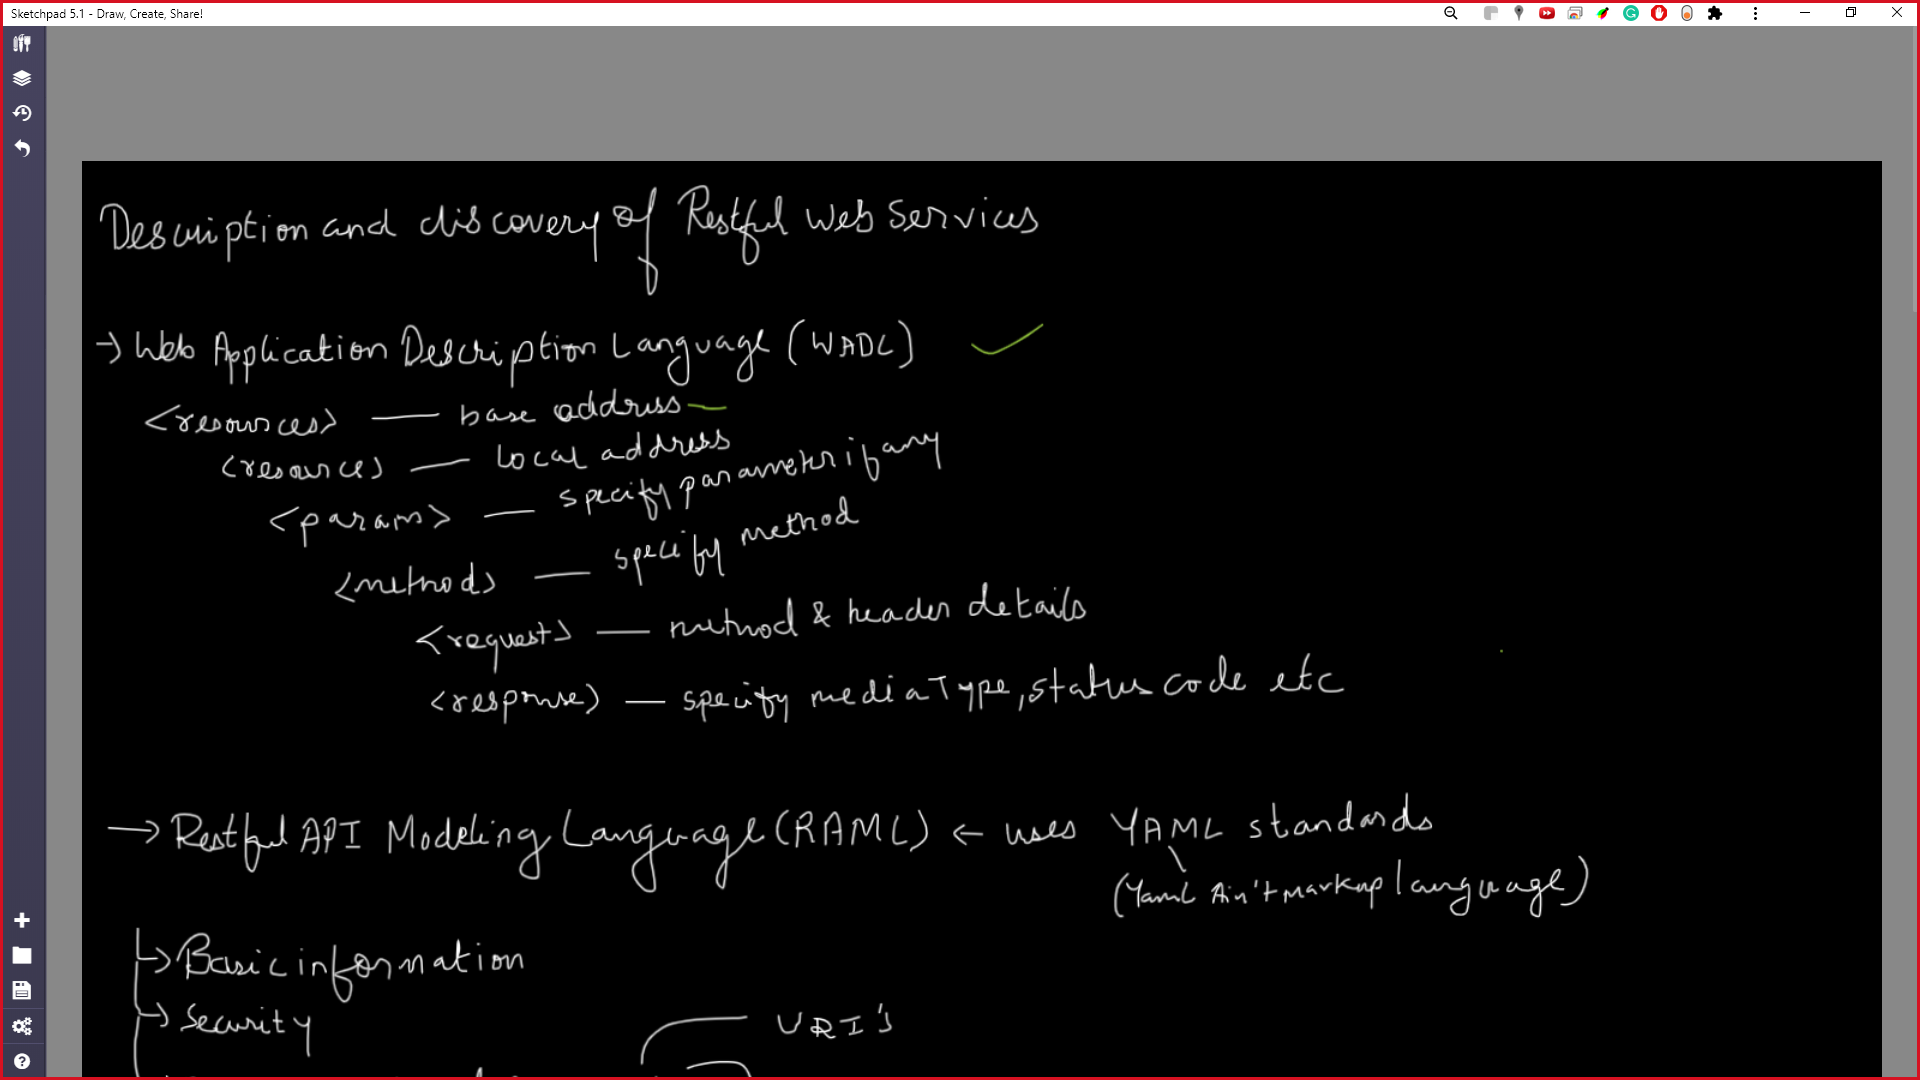 Sketchpad 5.1 - Draw, Create, Share!
Description and discovery of Restful Web Services
→ Web Application Description Language (WADL)
<resources> — base address
<resource> — local address
<params> — specify parameter if any
<method> — specify method
<request> — method & header details
<response> — specify mediaType, status code etc
→ Restful API Modeling Language (RAML) ← uses YAML standards
(Yaml Ain't markup language)
↳ Basic information
↳ Security
URI's